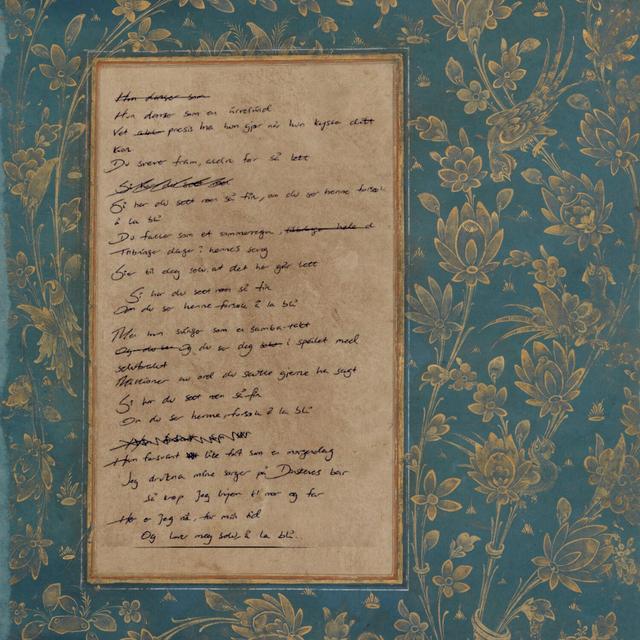 Hun danser som
Hun danser som en
Vet presis hva hun gjør når hun kysser ditt
kinn
Du svever fram, aldri før så lett
Si har du sett noen så fin, om du ser henne forsøk
å la bli
Du faller som et sommerregn, hele d
Tilbringe dager i hennes seng
Sier til deg selv at det her går lett
Si har du sett noen så fin
Om du ser henne forsøk å la bli
Men hun svinger som en samba-takt
Og du ser deg i speilet med
selvforakt
av ord du skulle gjerne ha sagt
Si har du sett noen så fin
Om du ser henne forsøk å la bli
Hun forsvant like fort som en
Jeg drukna mine sorger på bar
så kan jeg hjem til mor og far
Her er jeg nå, før min tid
Og lover meg selv å la bli.